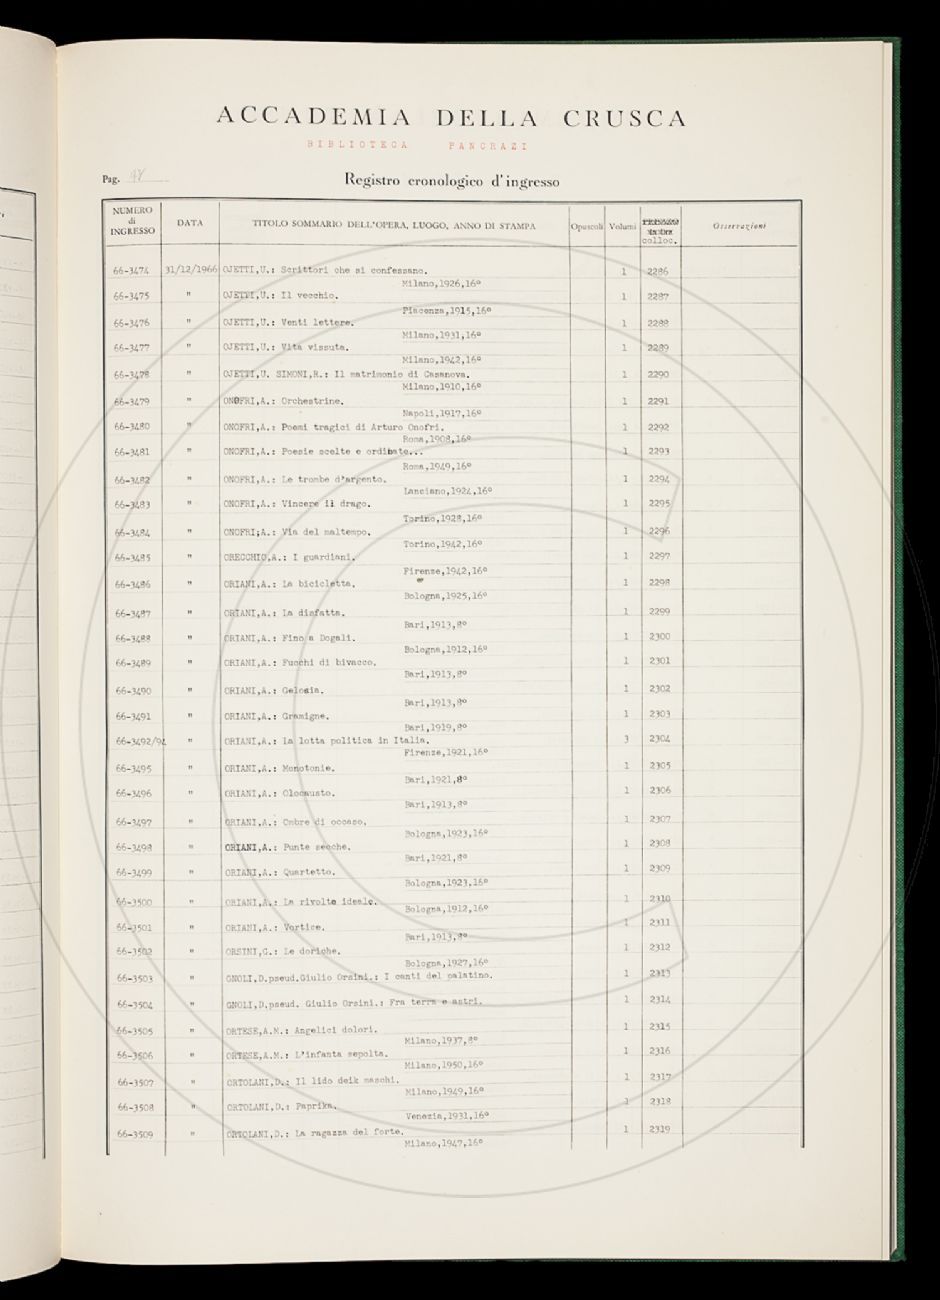 ACCADEMIA DELLA CRUSCA
BIBLIOTECA PANCRAZI
Pag. 48
Registro cronologico d'ingresso
NUMERO di INGRESSO DATA TITOLO SOMMARIO DELL'OPERA, LUOGO, ANNO DI STAMPA Opuscoli Volumi colloc. Osservazioni
66-3474 31/12/1966 OJETTI,U.: Scrittori che si confessano. 1 2286
Milano,1926,16°
66-3475 " OJETTI,U.: Il vecchio. 1 2287
Piacenza,1915,16°
66-3476 " OJETTI,U.: Venti lettere. 1 2288
Milano,1931,16°
66-3477 " OJETTI,U.: Vita vissuta. 1 2289
Milano,1942,16°
66-3478 " OJETTI,U. SIMONI,R.: Il matrimonio di Casanova. 1 2290
Milano,1910,16°
66-3479 " ONOFRI,A.: Orchestrine. 1 2291
Napoli,1917,16°
66-3480 " ONOFRI,A.: Poemi tragici di Arturo Onofri. 1 2292
Roma,1908,16°
66-3481 " ONOFRI,A.: Poesie scelte e ordinate... 1 2293
Roma,1949,16°
66-3482 " ONOFRI,A.: Le trombe d'argento. 1 2294
Lanciano,1924,16°
66-3483 " ONOFRI,A.: Vincere il drago. 1 2295
Torino,1928,16°
66-3484 " ONOFRI;A.: Via del maltempo. 1 2296
Torino,1942,16°
66-3485 " ORECCHIO,A.: I guardiani. 1 2297
Firenze,1942,16°
66-3486 " ORIANI,A.: La bicicletta. 1 2298
Bologna,1925,16°
66-3487 " ORIANI,A.: La disfatta. 1 2299
Bari,1913,8°
66-3488 " ORIANI,A.: Fino a Dogali. 1 2300
Bologna,1912,16°
66-3489 " ORIANI,A.: Fuochi di bivacco. 1 2301
Bari,1913,8°
66-3490 " ORIANI,A.: Gelosia. 1 2302
Bari,1913,8°
66-3491 " ORIANI,A.: Gramigne. 1 2303
Bari,1919,8°
66-3492/94 " ORIANI,A.: La lotta politica in Italia. 3 2304
Firenze,1921,16°
66-3495 " ORIANI,A.: Monotonie. 1 2305
Bari,1921,8°
66-3496 " ORIANI,A.: Olocausto. 1 2306
Bari,1913,8°
66-3497 " ORIANI,A.: Ombre di occaso. 1 2307
Bologna,1923,16°
66-3498 " ORIANI,A.: Punte secche. 1 2308
Bari,1921,8°
66-3499 " ORIANI,A.: Quartetto. 1 2309
Bologna,1923,16°
66-3500 " ORIANI,A.: La rivolta ideale. 1 2310
Bologna,1912,16°
66-3501 " ORIANI,A.: Vortice. 1 2311
Bari,1913,8°
66-3502 " ORSINI,G.: Le doriche. 1 2312
Bologna,1927,16°
66-3503 " GNOLI,D.pseud.Giulio Orsini.: I canti del palatino. 1 2313
66-3504 " GNOLI,D,pseud. Giulio Orsini.: Fra terra e astri. 1 2314
66-3505 " ORTESE,A.M.: Angelici dolori. 1 2315
Milano,1937,8°
66-3506 " ORTESE,A.M.: L'infanta sepolta. 1 2316
Milano,1950,16°
66-3507 " ORTOLANI,D.: Il lido deik maschi. 1 2317
Milano,1949,16°
66-3508 " ORTOLANI,D.: Paprika. 1 2318
Venezia,1931,16°
66-3509 " ORTOLANI,D.: La ragazza del forte. 1 2319
Milano,1947,16°